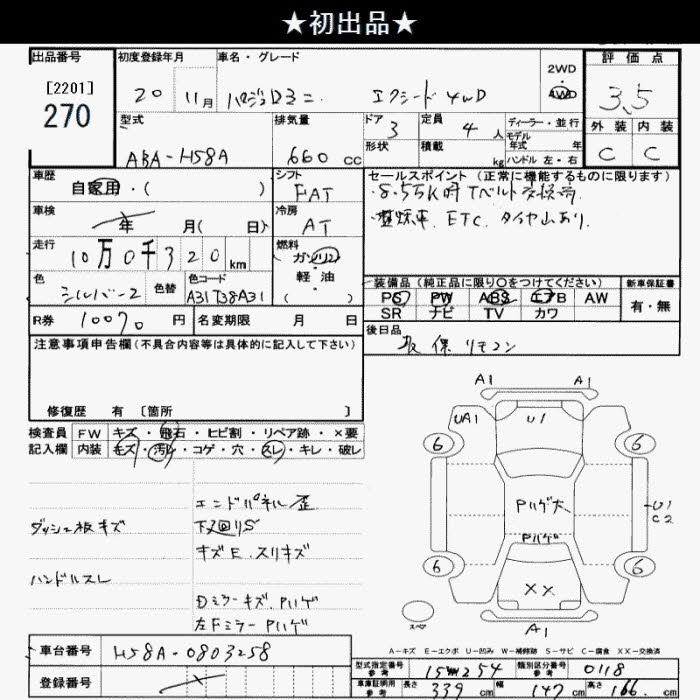 ★初出品★
出品番号
[2201]
270
初度登録年月
20 11月
車名・グレード
パジェロミニ エクシード4WD
2WD
・
4WD
評価点
3.5
外装 内装
C C
型式
ABA-H58A
排気量
660 cc
ドア
3
形状
定員
4 人
積載
kg
ディーラー・並行
モデル
年式 年
ハンドル 左・右
車歴
自家用・( )
車検
年 月( 日)
走行
10万0千320km
色
シルバー2
色替
色コード
A31T38A31
シフト
FAT
冷房
AT
燃料
ガソリン
・
軽・油
( )
セールスポイント (正常に機能するものに限ります)
・8.55K時Tベルト交換済
・禁煙車、ETC、タイヤ山あり。
装備品 (純正品に限り○をつけてください)
PS PW ABS エアB AW
SR ナビ TV カワ
新車保証書
有・無
R券 10070 円
名変期限 月 日
後日品
取 保 リモコン
注意事項申告欄 (不具合内容等は具体的に記入して下さい)
修復歴 有 [箇所 ]
検査員
記入欄
FW キズ・飛石・ヒビ割・リペア跡・×要
内装 キズ・汚れ・コゲ・穴・スレ・キレ・破レ
エンドパネル歪
ダッシュ板キズ
下廻りS
キズE、スリキズ
ハンドルスレ
Dミラーキズ、Pハゲ
左Fミラー Pハゲ
A1 A1
UA1 U1
6 6
Pハゲ大
U1
C2
Pハゲ
6 6
××
スペア
A1
A-キズ E-エクボ U-凹み W-補修跡 S-サビ C-腐食 XX-交換済
車台番号
H58A-0803258
登録番号
型式指定番号
参考
類別区分番号
参考
0118
車庫証明用
参考
長さ 339 cm 幅 147 cm 高さ 166 cm